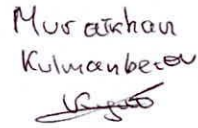 Muratkhan
Kulmanbetov